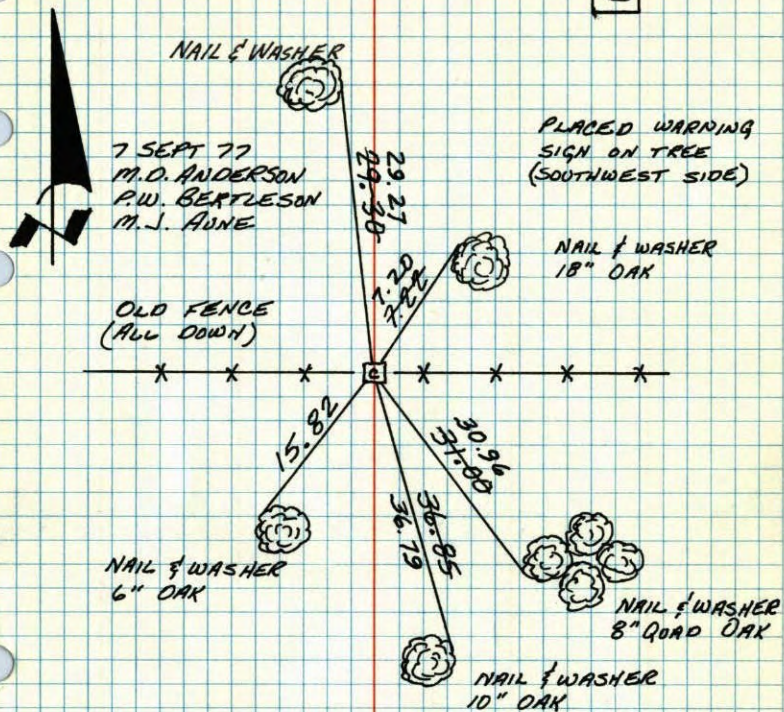 NAIL & WASHER
7 SEPT 77
M.D. ANDERSON
P.W. BERTLESON
M.J. AUNE
PLACED WARNING
SIGN ON TREE
(SOUTHWEST SIDE)
29.27
29.30
NAIL & WASHER
18" OAK
7.20
7.22
OLD FENCE
(ALL DOWN)
X X X C X X X X
15.82
30.96
31.00
36.85
36.79
NAIL & WASHER
6" OAK
NAIL & WASHER
8" QUAD OAK
NAIL & WASHER
10" OAK